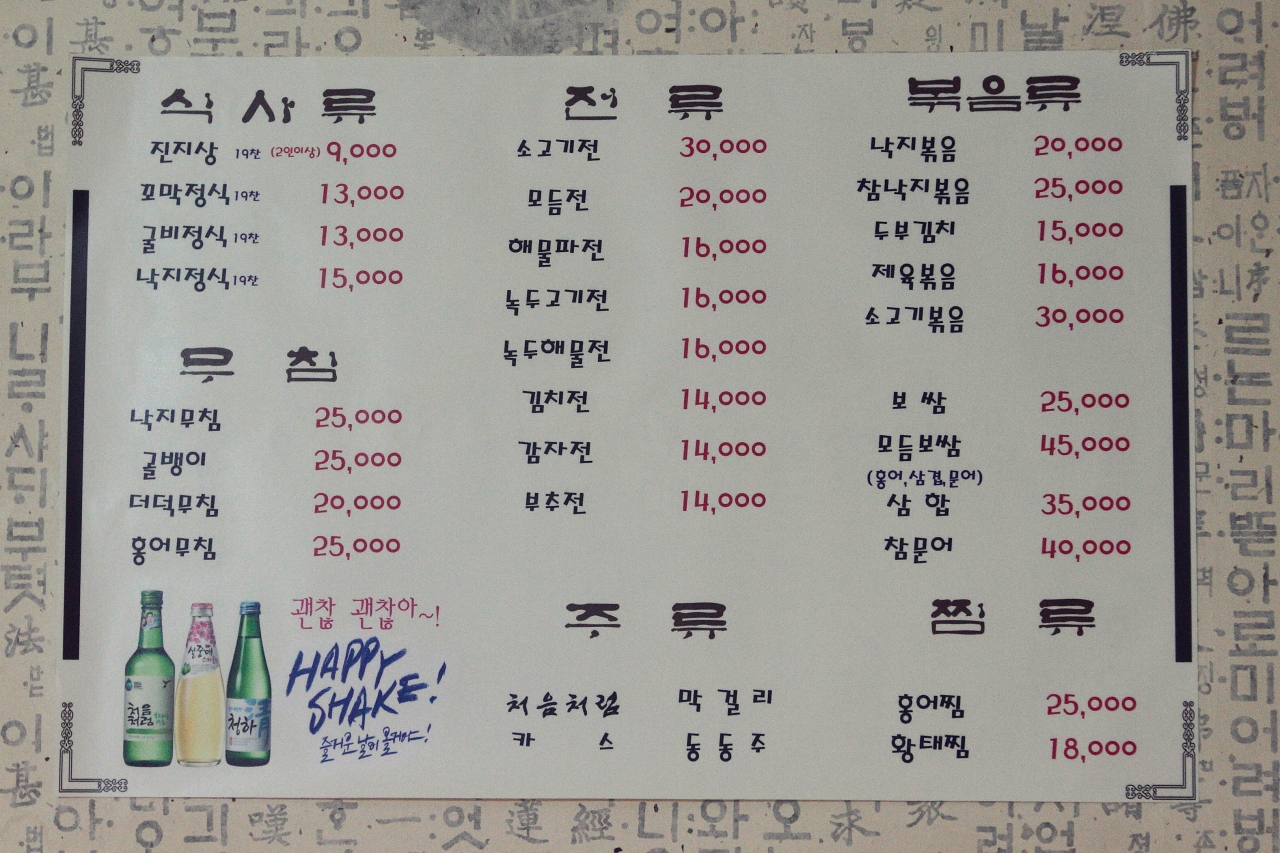 식 사 류
진지상 19찬 (2인이상) 9,000
꼬막정식 19찬 13,000
굴비정식 19찬 13,000
낙지정식 19찬 15,000
무 침
낙지무침 25,000
골뱅이 25,000
더덕무침 20,000
홍어무침 25,000
처음처럼
설중매
청하
괜찮 괜찮아~!
HAPPY
SHAKE!
즐거운 날이 올거야~!
전 류
소고기전 30,000
모듬전 20,000
해물파전 16,000
녹두고기전 16,000
녹두해물전 16,000
김치전 14,000
감자전 14,000
부추전 14,000
주 류
처음처럼 막 걸 리
카 스 동 동 주
볶음류
낙지볶음 20,000
참낙지볶음 25,000
두부김치 15,000
제육볶음 16,000
소고기볶음 30,000
보 쌈 25,000
모듬보쌈 45,000
(홍어,삼겹,문어)
삼 합 35,000
참문어 40,000
찜 류
홍어찜 25,000
황태찜 18,000